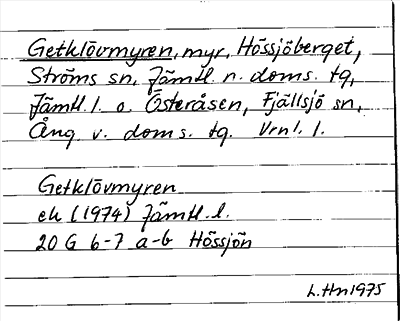 Getklövmyren, myr, Hössjöberget,
Ströms sn, Jämtl. n. doms. tg,
Jämtl. l. o. Österåsen, Fjällsjö sn,
Ång. v. doms. tg. Vrnl. l.
Getklövmyren
ek (1974) Jämtl. l.
20 G 6-7 a-b Hössjön
L. Hn 1975